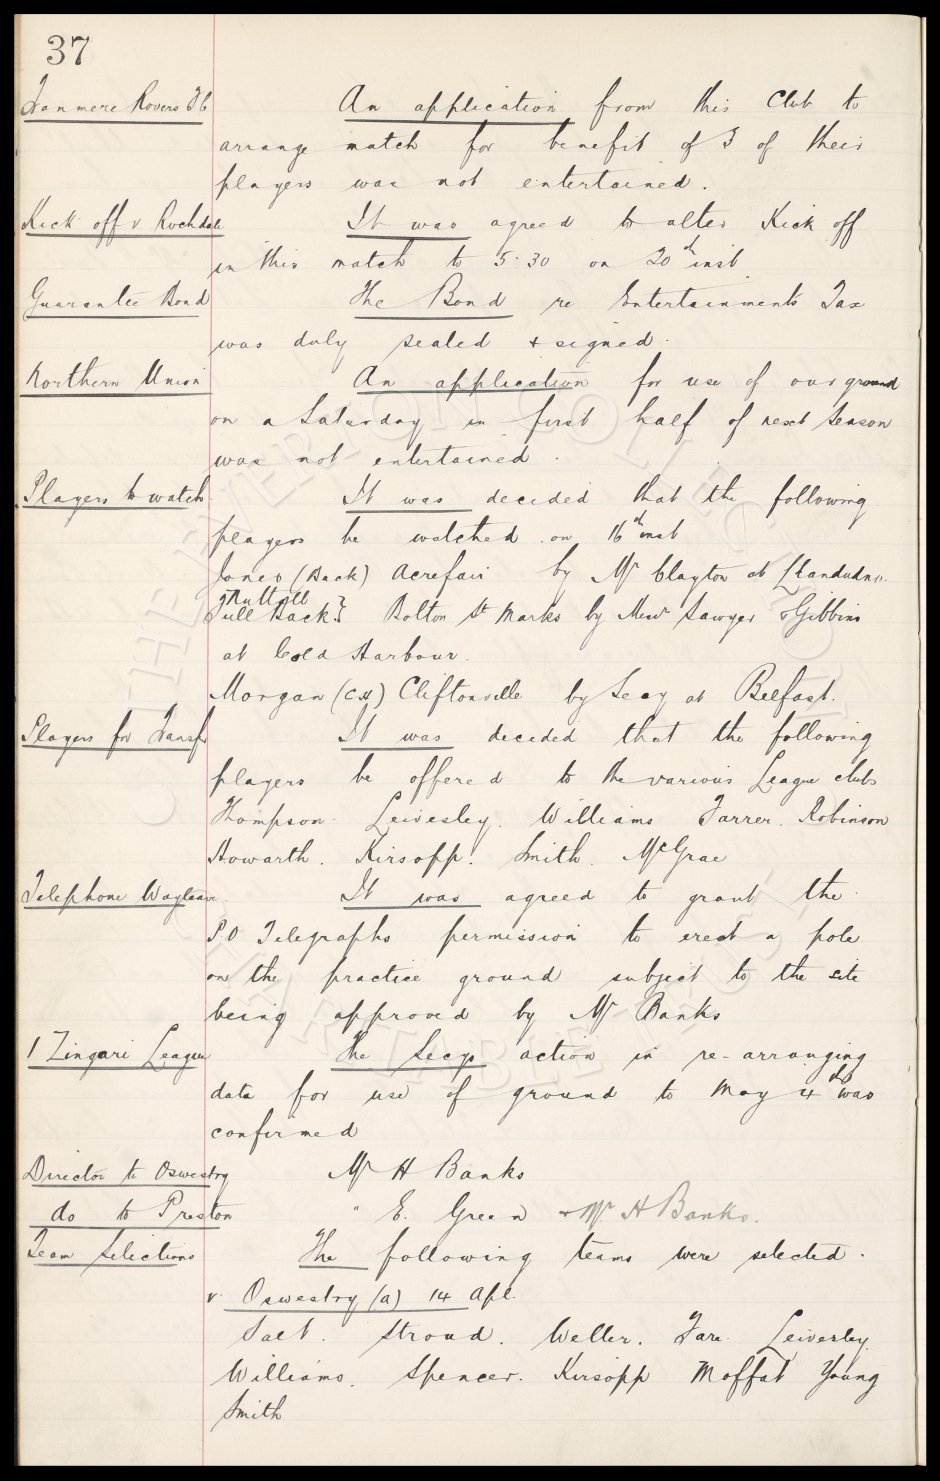 37
Tranmere Rovers Fc An application from this Club to
arrange match for benefit of 3 of their
players was not entertained.
Kick off v Rochdale It was agreed to alter Kick off
in this match to 5.30 on 20th inst
Guarantee Bond The Bond re Entertainments Tax
was duly sealed + signed.
Northern Union An application for use of our ground
on a Saturday in first half of next Season
was not entertained.
Players to watch It was decided that the following
players be watched on 16th inst
Jones (Back) Acrefair by Mr Clayton at Llandudno.
Nuttall
Full Back } Bolton St Marks by Messrs Sawyer & Gibbins
at Cold Harbour.
Morgan (CH) Cliftonville by Secy at Belfast.
Players for Transfr It was decided that the following
players be offered to the various League clubs
Thompson. Leivesley. Williams Farrer. Robinson
Howarth. Kirsopp. Smith. McGrae
Telephone Wayleave. It was agreed to grant the
P O Telegraphs permission to erect a pole
on the practice ground subject to the site
being approved by Mr Banks
I Zingari League The Secys action in re-arranging
date for use of ground to May 4th was
confirmed
Director to Oswestry Mr H Banks
do to Preston " E. Green + Mr H Banks.
Team Selections The following teams were selected.
v. Oswestry (a) 14 Apl.
Salt. Stroud. Weller. Fare. Leivesley.
Williams. Spencer. Kirsopp Moffat Young
Smith
THE EVERTON COLLECTION
CHARITABLE TRUST